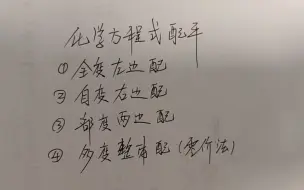 化学方程式配平
①全变左边配
②自变右边配
③部变两边配
④多变整体配(零价法)